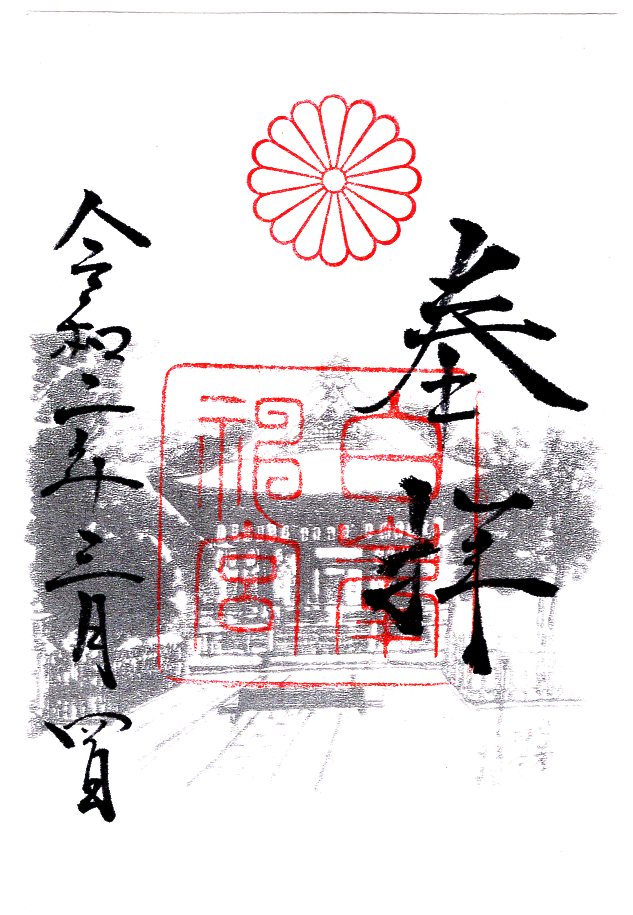 奉拝
白峯
神宮
令和二年三月四日